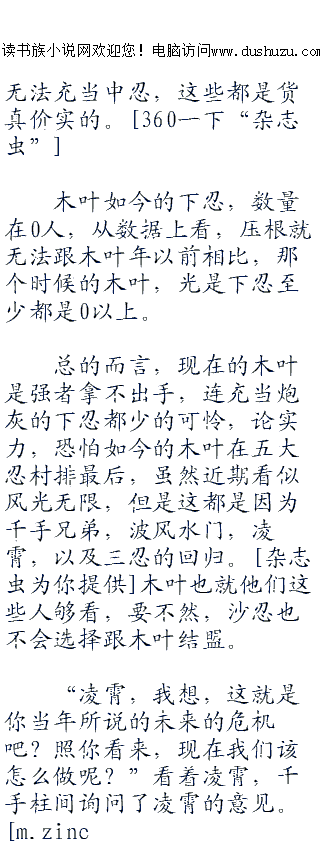 读书族小说网欢迎您！电脑访问www.dushuzu.com
无法充当中忍，这些都是货
真价实的。[360一下“杂志
虫”]
木叶如今的下忍，数量
在0人，从数据上看，压根就
无法跟木叶年以前相比，那
个时候的木叶，光是下忍至
少都是0以上。
总的而言，现在的木叶
是强者拿不出手，连充当炮
灰的下忍都少的可怜，论实
力，恐怕如今的木叶在五大
忍村排最后，虽然近期看似
风光无限，但是这都是因为
千手兄弟，波风水门，凌
霄，以及三忍的回归。[杂志
虫为你提供]木叶也就他们这
些人够看，要不然，沙忍也
不会选择跟木叶结盟。
“凌霄，我想，这就是
你当年所说的未来的危机
吧？照你看来，现在我们该
怎么做呢？”看着凌霄，千
手柱间询问了凌霄的意见。
[m.zinc